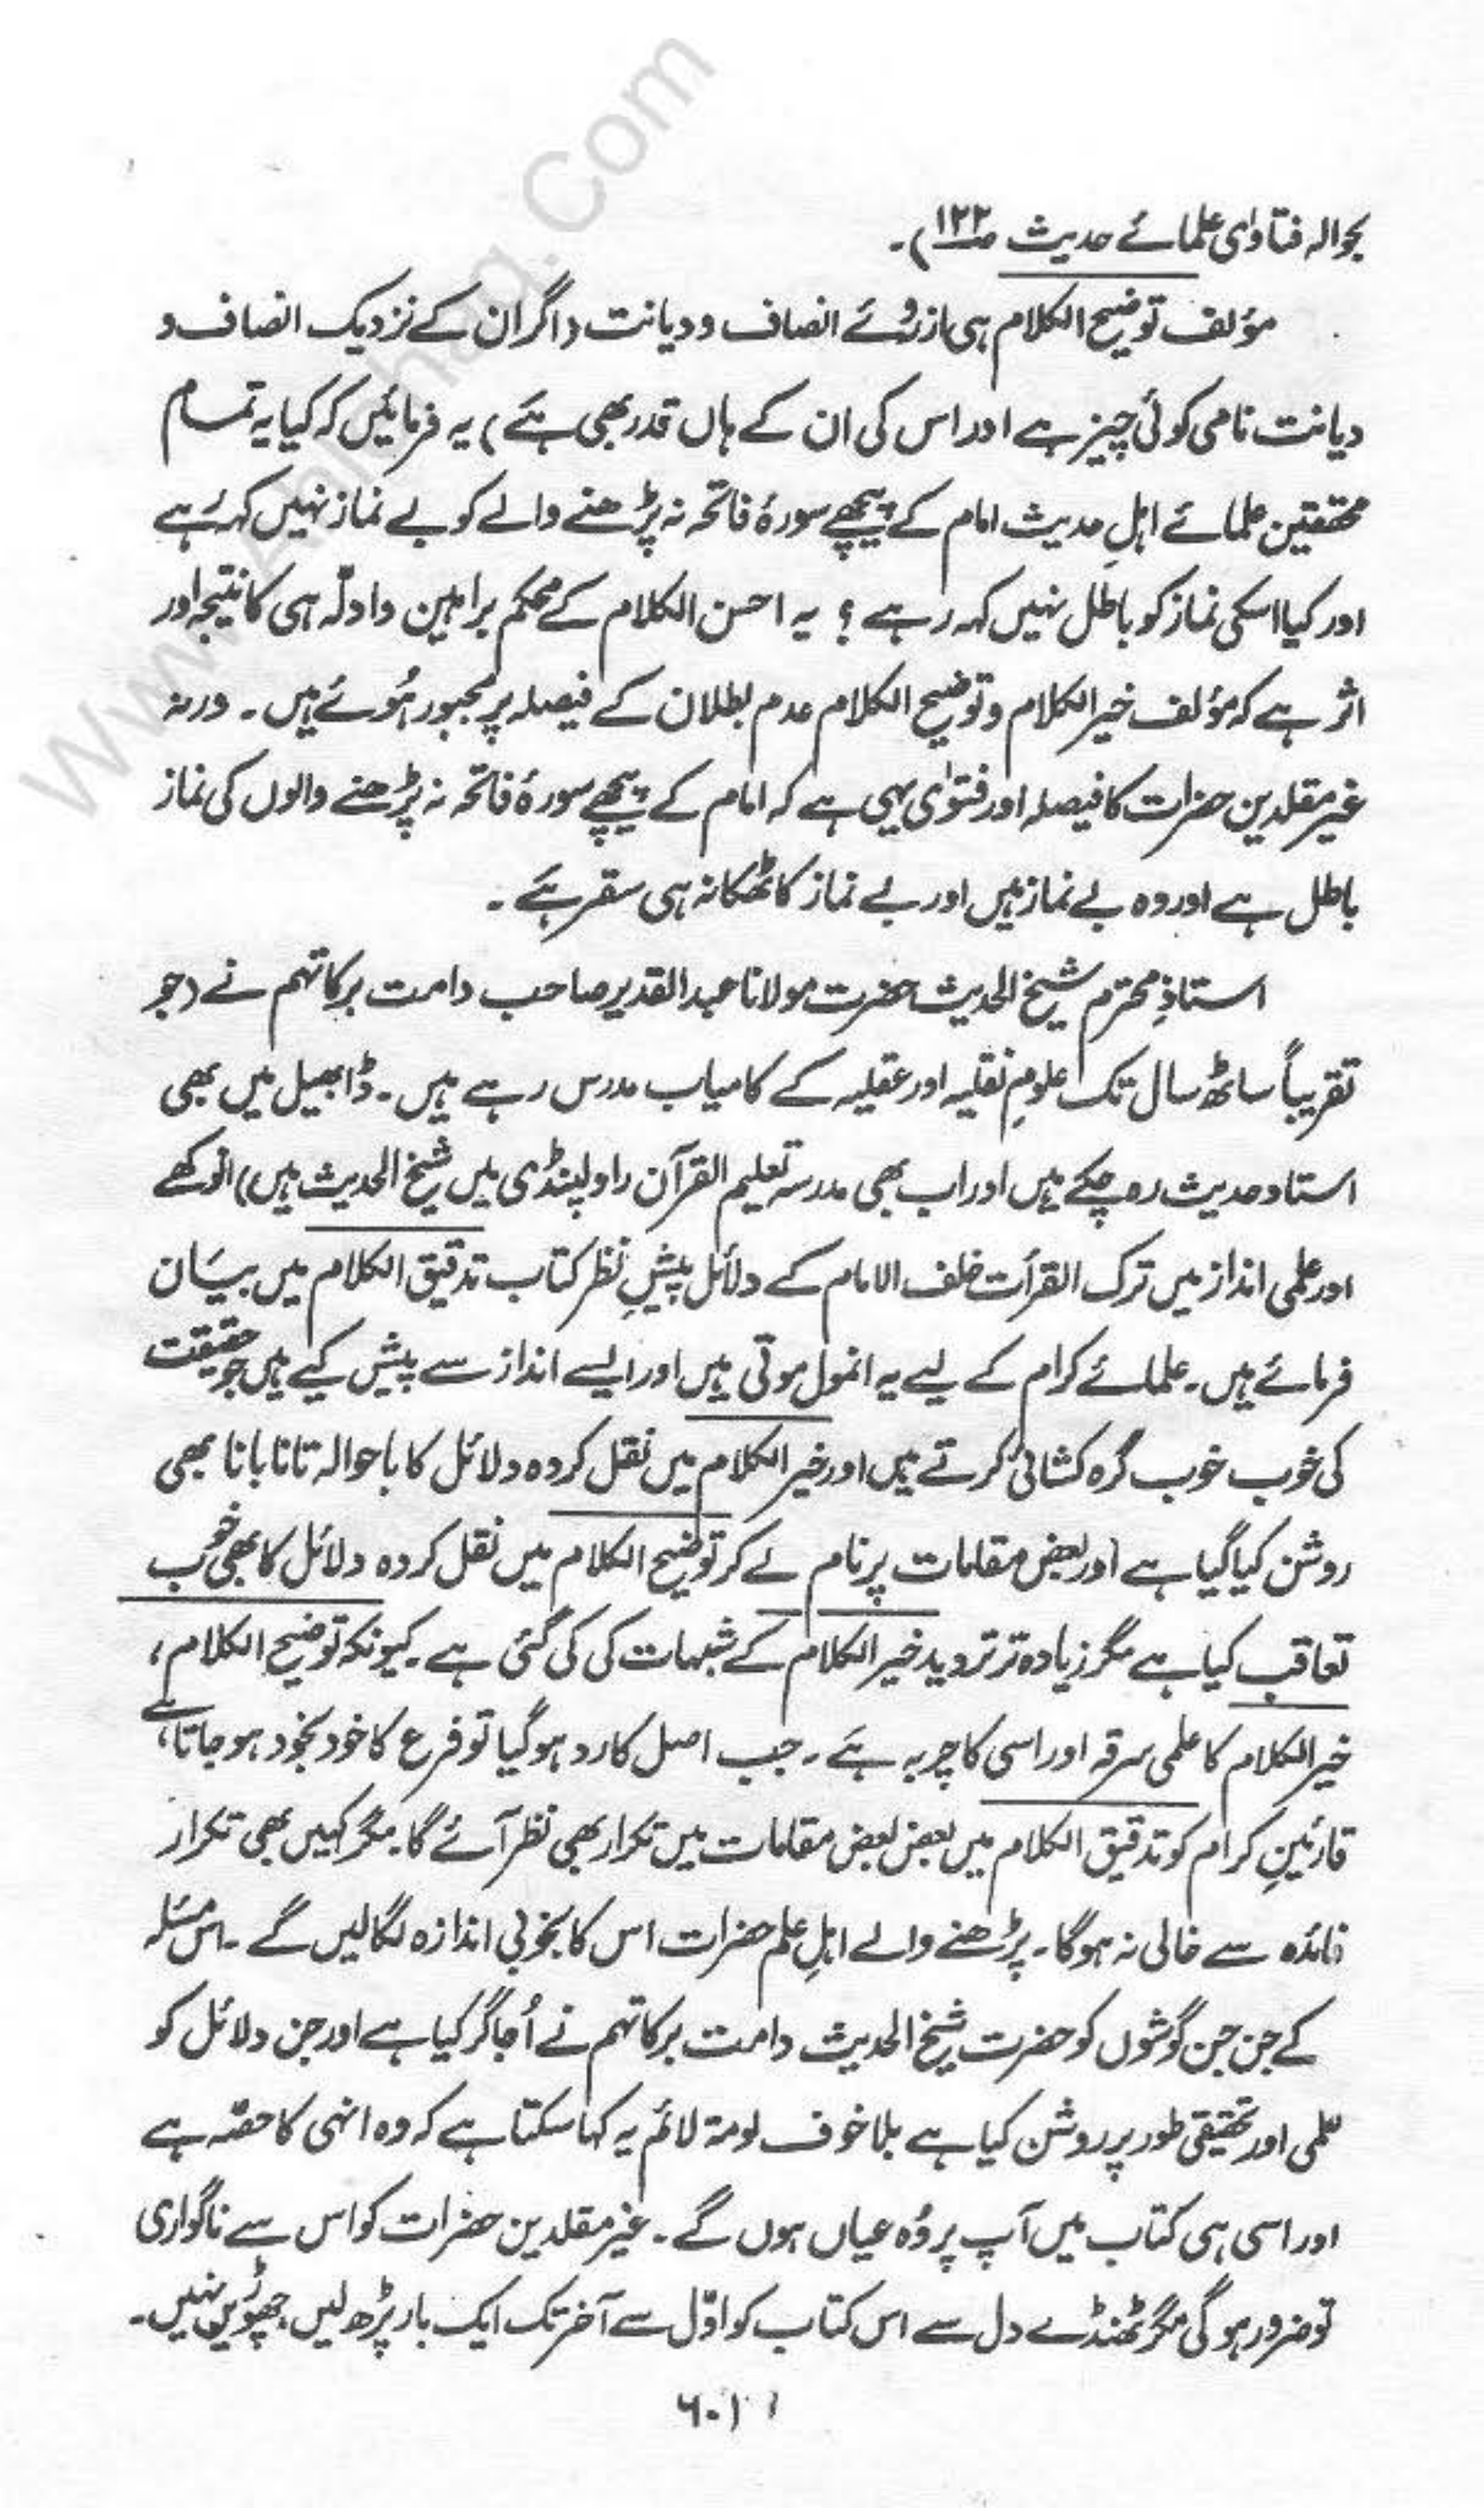 بحوالہ فتاوٰی علمائے حدیث صـ ۱۲۲)۔
مؤلف توضیح الکلام ہی ازرُوئے انصاف و دیانت (اگر ان کے نزدیک انصاف و
دیانت نامی کوئی چیز ہے اور اس کی ان کے ہاں قدر بھی ہے) یہ فرمائیں کہ کیا یہ تمام
محققین علمائے اہلِ حدیث امام کے پیچھے سورۂ فاتحہ نہ پڑھنے والے کو بے نماز نہیں کہہ رہے
اور کیا اسکی نماز کو باطل نہیں کہہ رہے ؟ یہ احسن الکلام کے محکم براہین و ادلّہ ہی کا نتیجہ اور
اثر ہے کہ مؤلف خیر الکلام و توضیح الکلام عدم بطلان کے فیصلہ پر مجبور ہُوئے ہیں ۔ ورنہ
غیر مقلدین حضرات کا فیصلہ اور فتوٰی یہی ہے کہ امام کے پیچھے سورۂ فاتحہ نہ پڑھنے والوں کی نماز
باطل ہے اور وہ بے نماز ہیں اور بے نماز کا ٹھکانہ ہی سقر ہے ۔
استاذِ محترم شیخ الحدیث حضرت مولانا عبدالقدیر صاحب دامت برکاتہم نے (جو
تقریباً ساٹھ سال تک علومِ نقلیہ اور عقلیہ کے کامیاب مدرس رہے ہیں ۔ ڈابھیل میں بھی
استاد حدیث رہ چکے ہیں اور اب بھی مدرسہ تعلیم القرآن راولپنڈی میں شیخ الحدیث ہیں) انوکھے
اور علمی انداز میں ترک القرأت خلف الامام کے دلائل پیشِ نظر کتاب تدقیق الکلام میں بیان
فرمائے ہیں ۔ علمائے کرام کے لیے یہ انمول موتی ہیں اور ایسے انداز سے پیش کیے ہیں جو حقیقت
کی خوب خوب گرہ کشائی کرتے ہیں اور خیر الکلام میں نقل کردہ دلائل کا باحوالہ تانا بانا بھی
روشن کیا گیا ہے اور بعض مقامات پر نام لے کر توضیح الکلام میں نقل کردہ دلائل کا بھی خوب
تعاقب کیا ہے مگر زیادہ تر تردید خیر الکلام کے شبہات کی کی گئی ہے ۔ کیونکہ توضیح الکلام،
خیر الکلام کا علمی سرقہ اور اسی کا چربہ ہے ۔ جب اصل کا رد ہو گیا تو فرع کا خود بخود ہو جاتا ہے،
قارئینِ کرام کو تدقیق الکلام میں بعض بعض مقامات میں تکرار بھی نظر آئے گا ۔ مگر کہیں بھی تکرار
فائدہ سے خالی نہ ہوگا ۔ پڑھنے والے اہلِ علم حضرات اس کا بخوبی اندازہ لگا لیں گے ۔ اس مسئلہ
کے جن جن گوشوں کو حضرت شیخ الحدیث دامت برکاتہم نے اُجاگر کیا ہے اور جن دلائل کو
علمی اور تحقیقی طور پر روشن کیا ہے بلا خوف لومۃ لائم یہ کہا سکتا ہے کہ وہ انہی کا حصّہ ہے
اور اسی ہی کتاب میں آپ پر وُہ عیاں ہوں گے ۔ غیر مقلدین حضرات کو اس سے ناگواری
تو ضرور ہو گی مگر ٹھنڈے دل سے اس کتاب کو اوّل سے آخر تک ایک بار پڑھ لیں، چھوڑیں نہیں۔